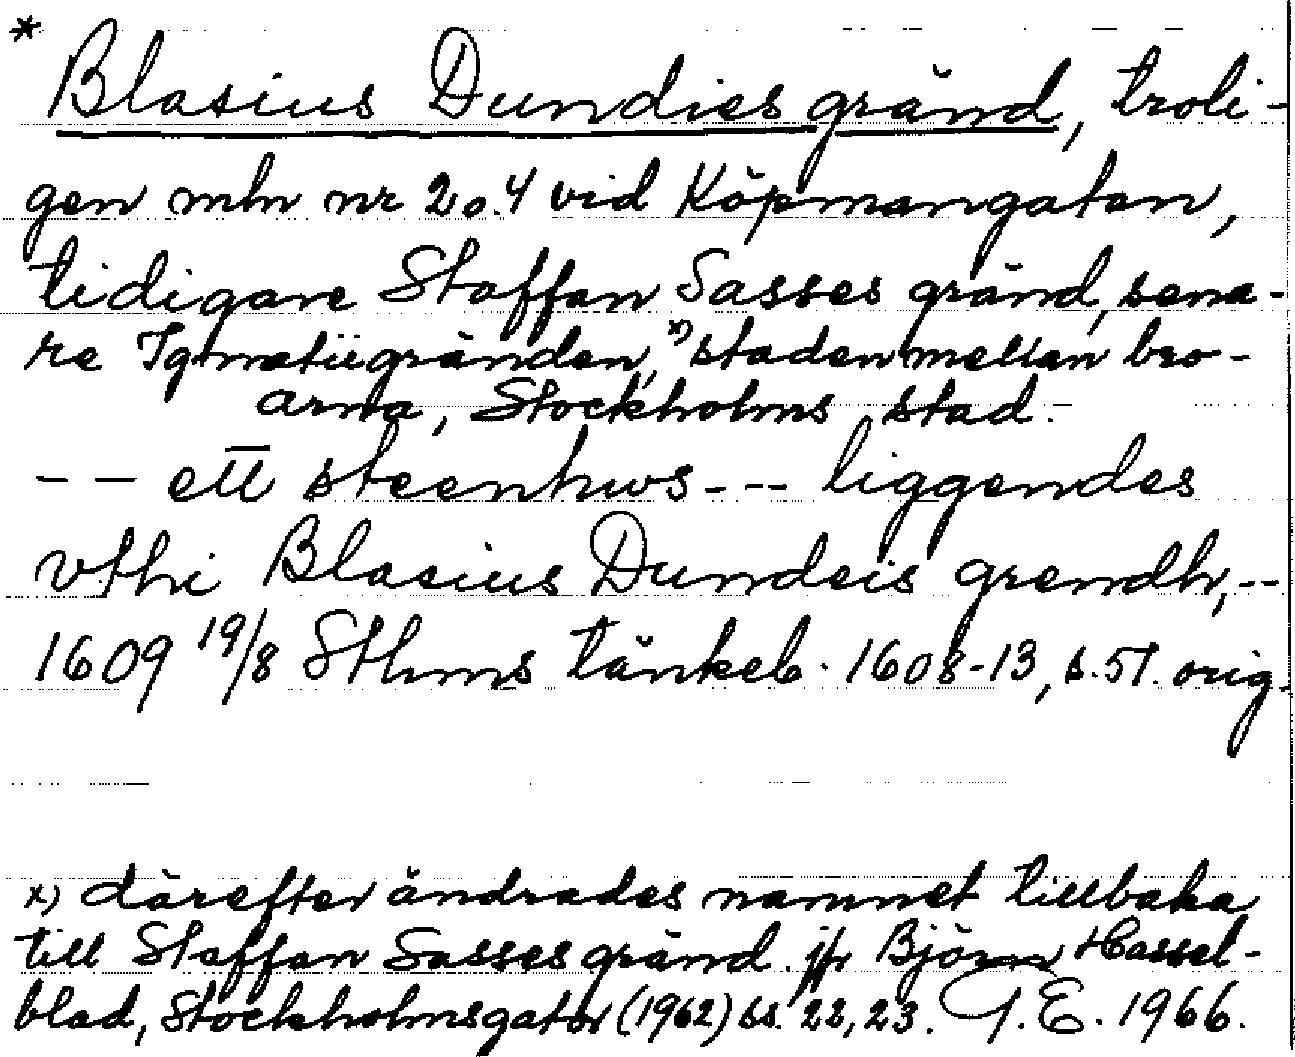 *
Blasius Dundies gränd, troli-
gen mln nr 2 o. 4 vid Köpmangatan,
tidigare Staffan Sasses gränd, sena-
re Ignatiigränden, x) staden mellan bro-
arna, Stockholms stad.
-- ett steenhws --- liggendes
vthi Blasius Dundeis grendh, --
1609 19/8 Sthms tänkeb. 1608-13, s. 57. orig.
x) därefter ändrades namnet tillbaka
till Staffan Sasses gränd. jfr Björn Hassel-
blad, Stockholmsgator (1962) ss. 22, 23. G.E. 1966.